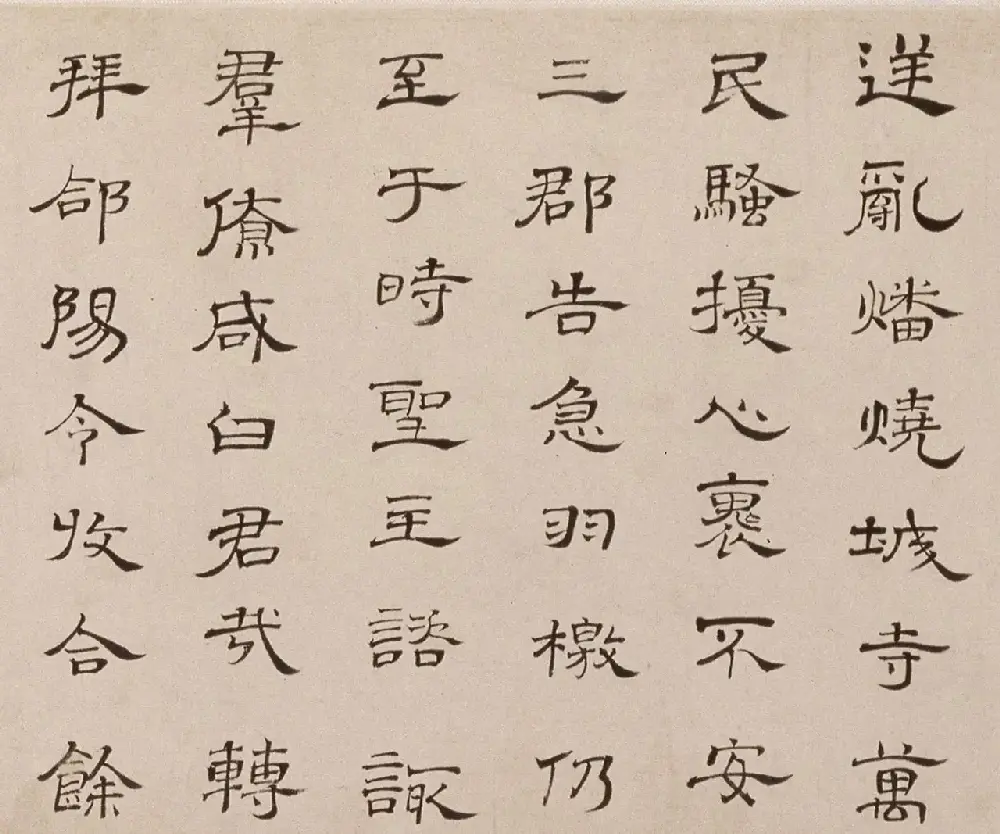 逆亂燔燒城寺萬
民騷擾心裹不安
三郡告急羽檄仍
至于時聖主諮諏
羣僚咸曰君哉轉
拜郃陽令收合餘